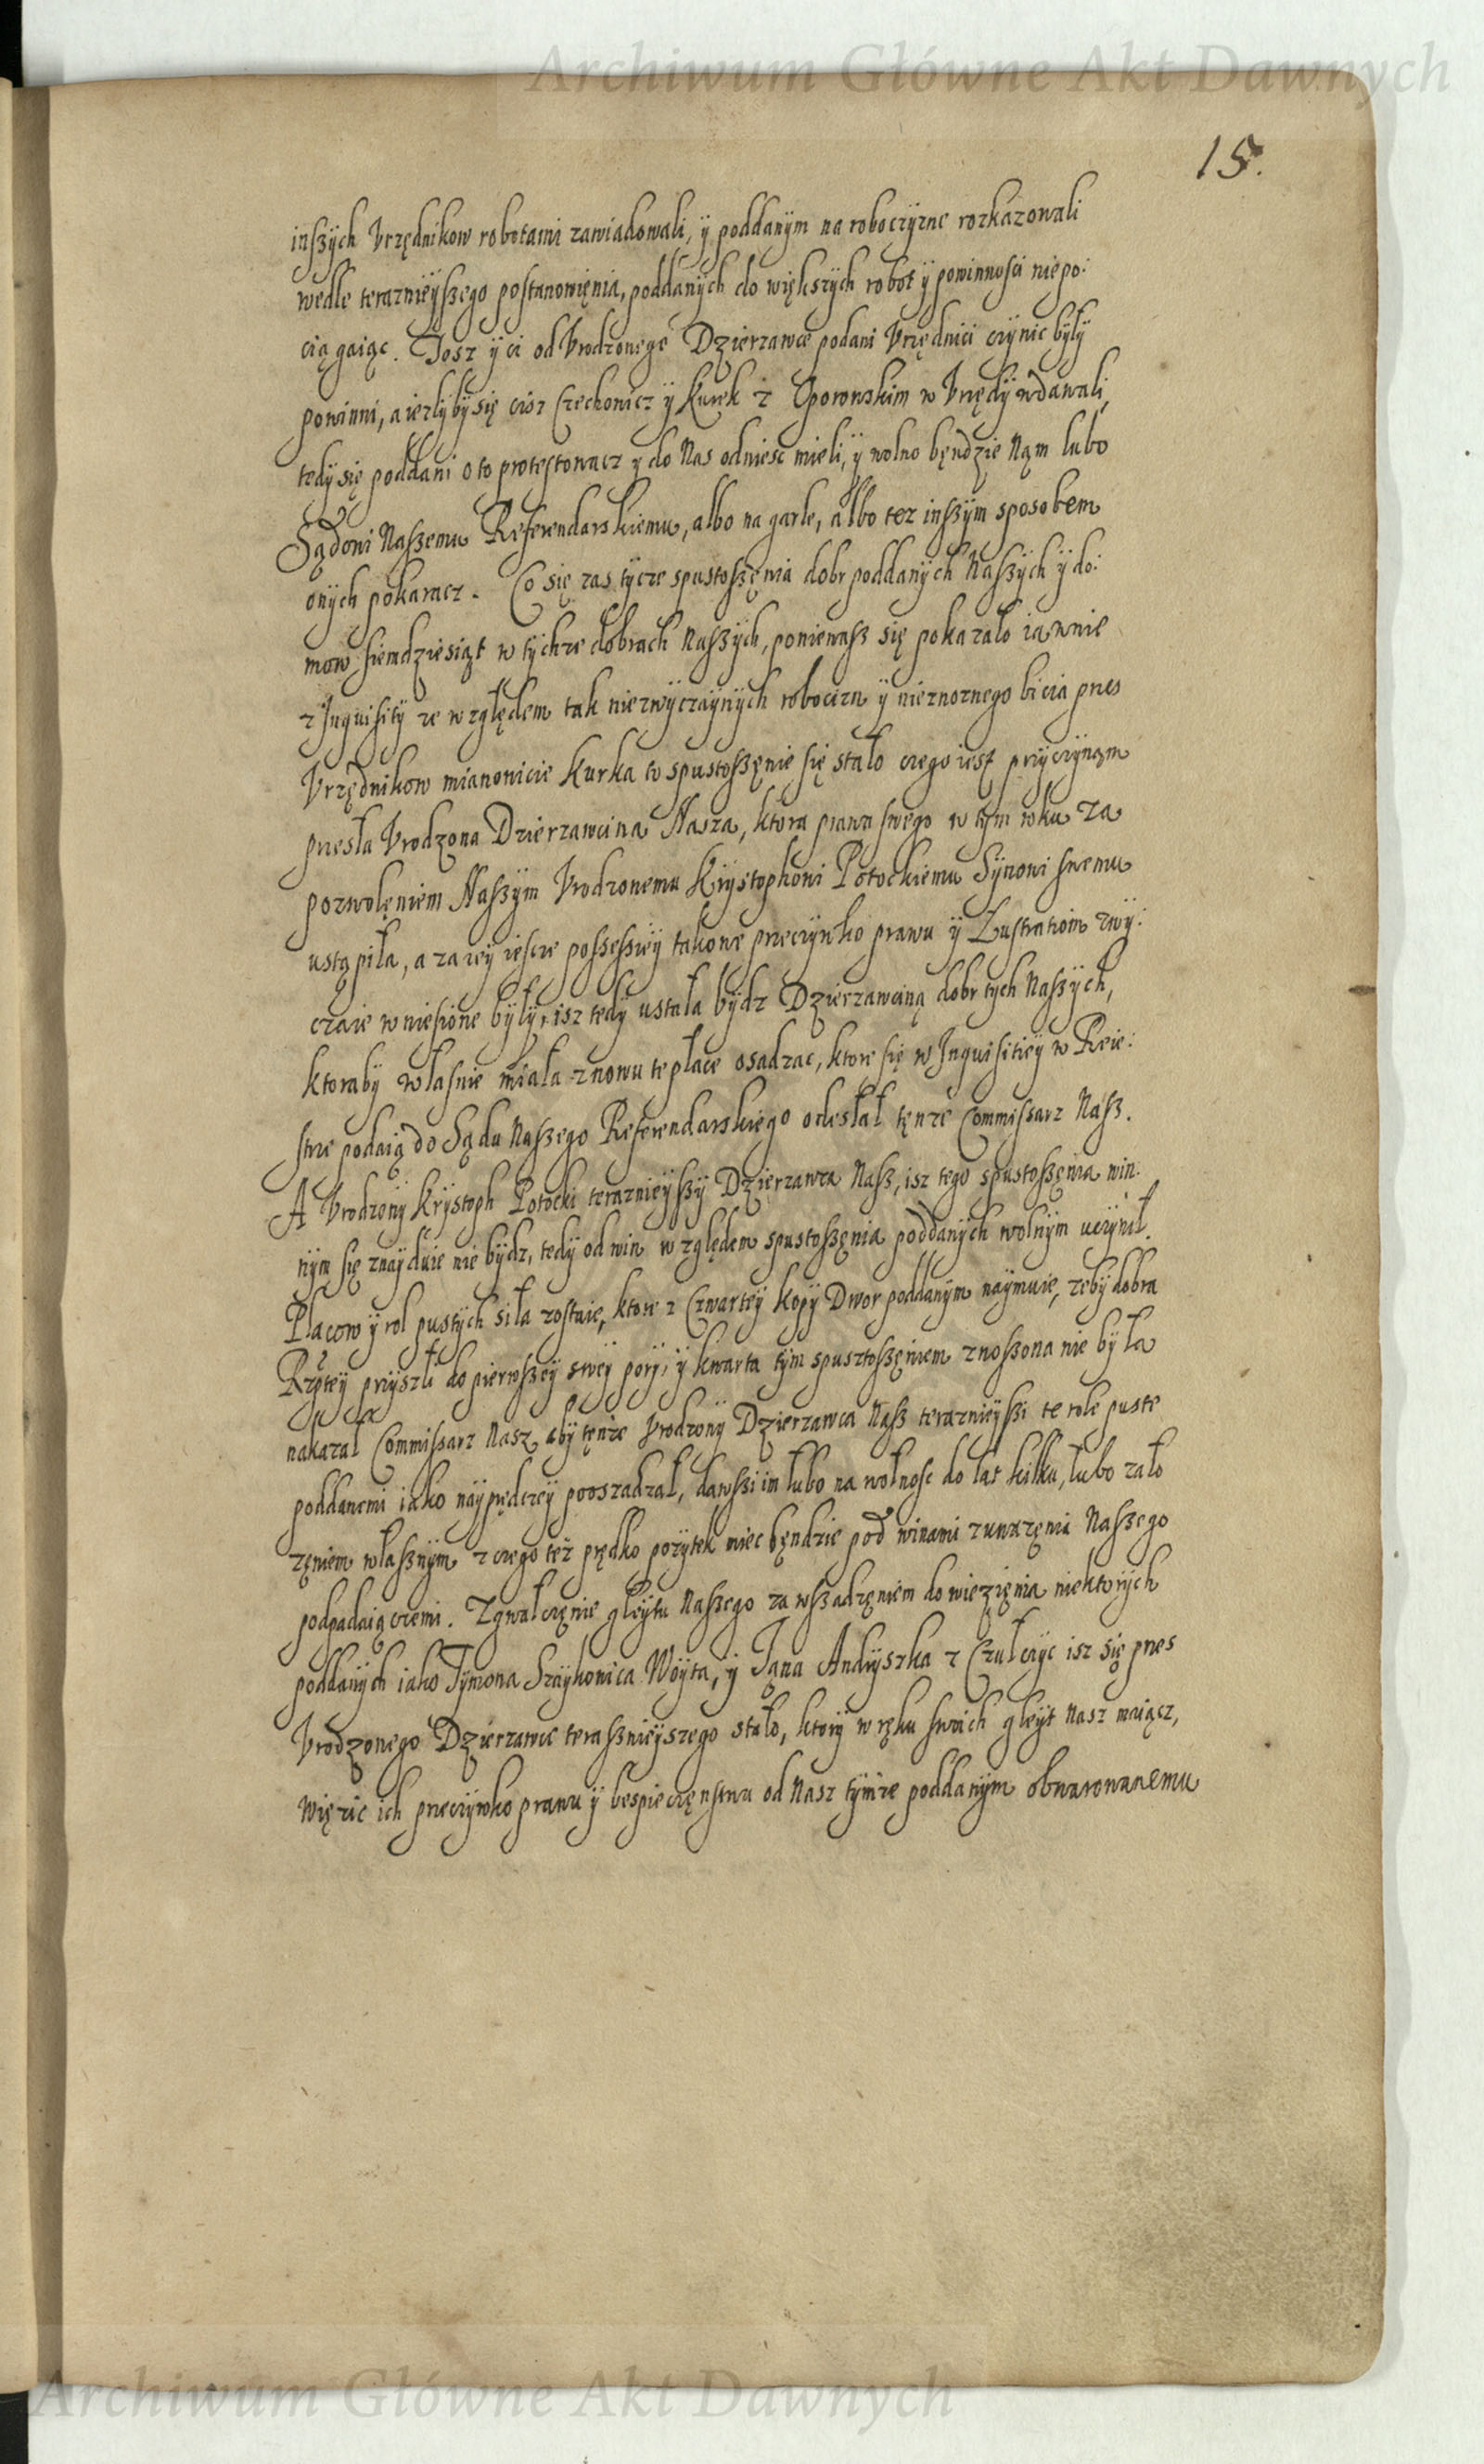 Archiwum Główne Akt Dawnych
15.
inszych Vrzędnikow robotami zawiadowali, ÿ poddanÿm na roboczÿzne rozkazowali
wedle teraznieÿszego postanowięnia, poddanÿch do większych robot ÿ powinności niepo:
ciągaiąc. Tosz ÿ ci od Vrodzonego Dzierzawce podani Vrzędnici czÿnic bÿlÿ
powinni, a iezlibÿ się cisz Czechowicz ÿ Kurek z Oporowskim w Vrzędÿ wdawali,
tedÿ się poddani o to protestowacz y do Nas odniesc mieli, ÿ wolno będzie Nąm lubo
Sądowi Naszemu Referendarskiemu, albo na garle, albo tez inszÿm sposobem
onÿch pokaracz. Co się zas tÿcze spustoszęnia dobr poddanÿch Naszÿch ÿ do:
mow siemdziesiąt w tÿchze dobrach Naszÿch, poniewasz się pokazało iawnie
z Inquisitÿ ze względem tak niezwÿczaÿnÿch robocizn ÿ nieznoznego bicia przes
Vrzędnikow mianowicie Kurka to spustoszęnie się stało czego iest przÿczÿnąm
przesła Vrodzona Dzierzawcina Nasza, ktora prawa swego w tÿm roku za
pozwolęniem Naszÿm Vrodzonemu Krÿstophowi Potockiemu Sÿnowi swemu
ustąpiła, a za ieÿ iescze possessieÿ takowe przeczÿwko prawu ÿ Lustratiom zwÿ:
czaie wniesione bÿłÿ, isz tedÿ ustała bÿdz Dzierzawciną dobr tÿch Naszÿch,
ktorabÿ własnie miała znowu te place osadzac, ktore się w Inquisitieÿ w Reie:
strze podaią do Sądu Naszego Referendarskiego odesłał tęnze Commissarz Nasz.
A Vrodzonÿ Krÿstoph Potocki teraznieÿszÿ Dzierzawca Nasz, isz tego spustoszęnia win:
nÿm się znaÿduie nie bÿdz, tedÿ od win względem spustoszęnia poddanÿch wolnÿm uczÿnił.
Placow ÿ rol pustÿch siła zostaie, ktore z Czwarteÿ kopÿ Dwor poddanÿm naÿmuie, zebÿ dobra
Rzpteÿ przÿszłi do pierwszeÿ sweÿ porÿ, ÿ kwarta tÿm spusztoszęniem znoszona nie bÿła
nakazał Commissarz Nasz abÿ tęnze Vrodzonÿ Dzierzawca Nasz teraznieÿszi te role puste
poddanemi iako naÿpędzeÿ pooszadzał, dawszi im lubo na wolnosc do lat kilku, lubo zało
zęniem własznÿm z czego tez prędko pozÿtek miec będzie pod winami zuwazęnia Naszego
podpadaiączemi. Zgwałczęnie gleÿtu Naszego za wszadzęniem do wiezięnia niektorÿch
poddanÿch iako Tÿmona Szaÿkowica Woÿta, ÿ Jąna Andrÿszka z Czulczÿc isz się przes
Vrodzonego Dzierzawce teraszniejszego stało, ktorÿ w ręku swoich gleÿt Nasz maiącz,
więzic ich przeczÿwko prawu ÿ bespieczęnstwu od Nasz tÿmze poddanÿm obwarowanemu
Archiwum Główne Akt Dawnych